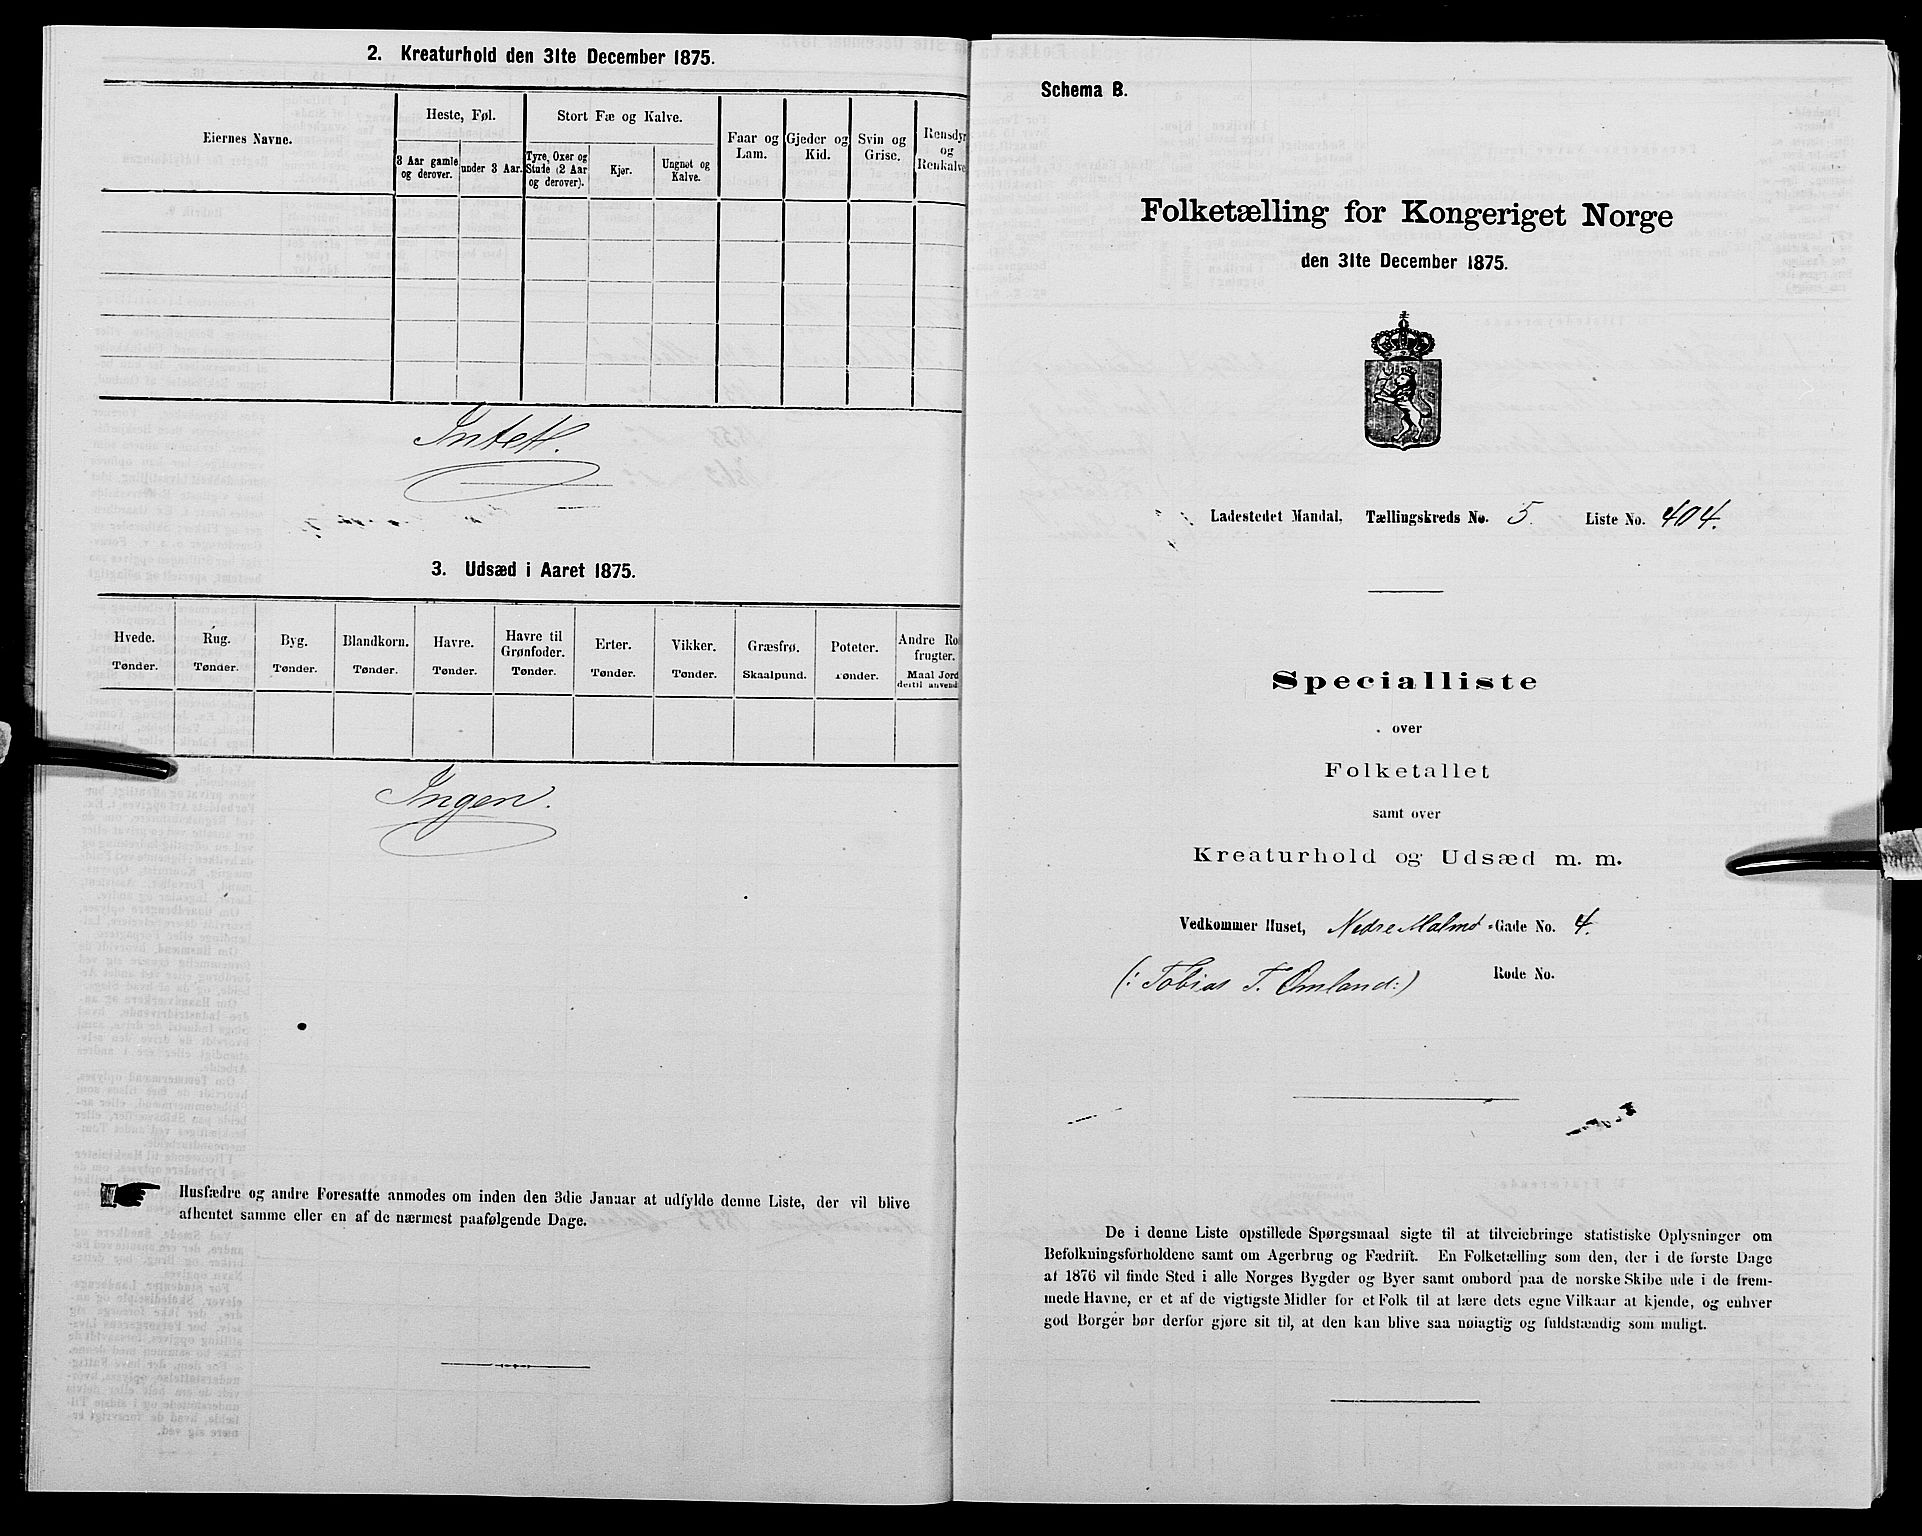 2. Kreaturhold den 31te December 1875.
Eiernes Navne.
Heste, Føl.
Stort Fæ og Kalve.
Faar og Lam.
Gjeder og Kid.
Svin og Grise.
Rensdyr og Renkalve
3 Aar gamle og derover.
under 3 Aar.
Tyre, Oxer og Stude (2 Aar og derover).
Kjør.
Ungnøt og Kalve.
Intet.
3. Udsæd i Aaret 1875.
Hvede. Tønder.
Rug. Tønder.
Byg. Tønder.
Blandkorn. Tønder.
Havre. Tønder.
Havre til Grønfoder. Tønder.
Erter. Tønder.
Vikker. Tønder.
Græsfrø. Skaalpund.
Poteter. Tønder.
Andre Ro frugter. Maal Jord dertil anvend
Ingen.
Husfædre og andre Foresatte anmodes om inden den 3die Januar at udfylde denne Liste, der vil blive
afhentet samme eller en af de nærmest paafølgende Dage.
Schema B.
Folketælling for Kongeriget Norge
den 31te December 1875.
Ladestedet Mandal, Tællingskreds No. 5. Liste No. 404.
Specialliste
over
Folketallet
samt over
Kreaturhold og Udsæd m. m.
Vedkommer Huset, Nedre Malmø-Gade No. 4.
(: Tobias T. Omland :) Rode No.
De i denne Liste opstillede Spørgsmaal sigte til at tilveiebringe statistiske Oplysninger om
Befolkningsforholdene samt om Agerbrug og Fædrift. En Folketælling som den, der i de første Dage
af 1876 vil finde Sted i alle Norges Bygder og Byer samt ombord paa de norske Skibe ude i de frem-
mede Havne, er et af de vigtigste Midler for et Folk til at lære dets egne Vilkaar at kjende, og enhver
god Borger bør derfor gjøre sit til, at den kan blive saa nøiagtig og fuldstændig som muligt.